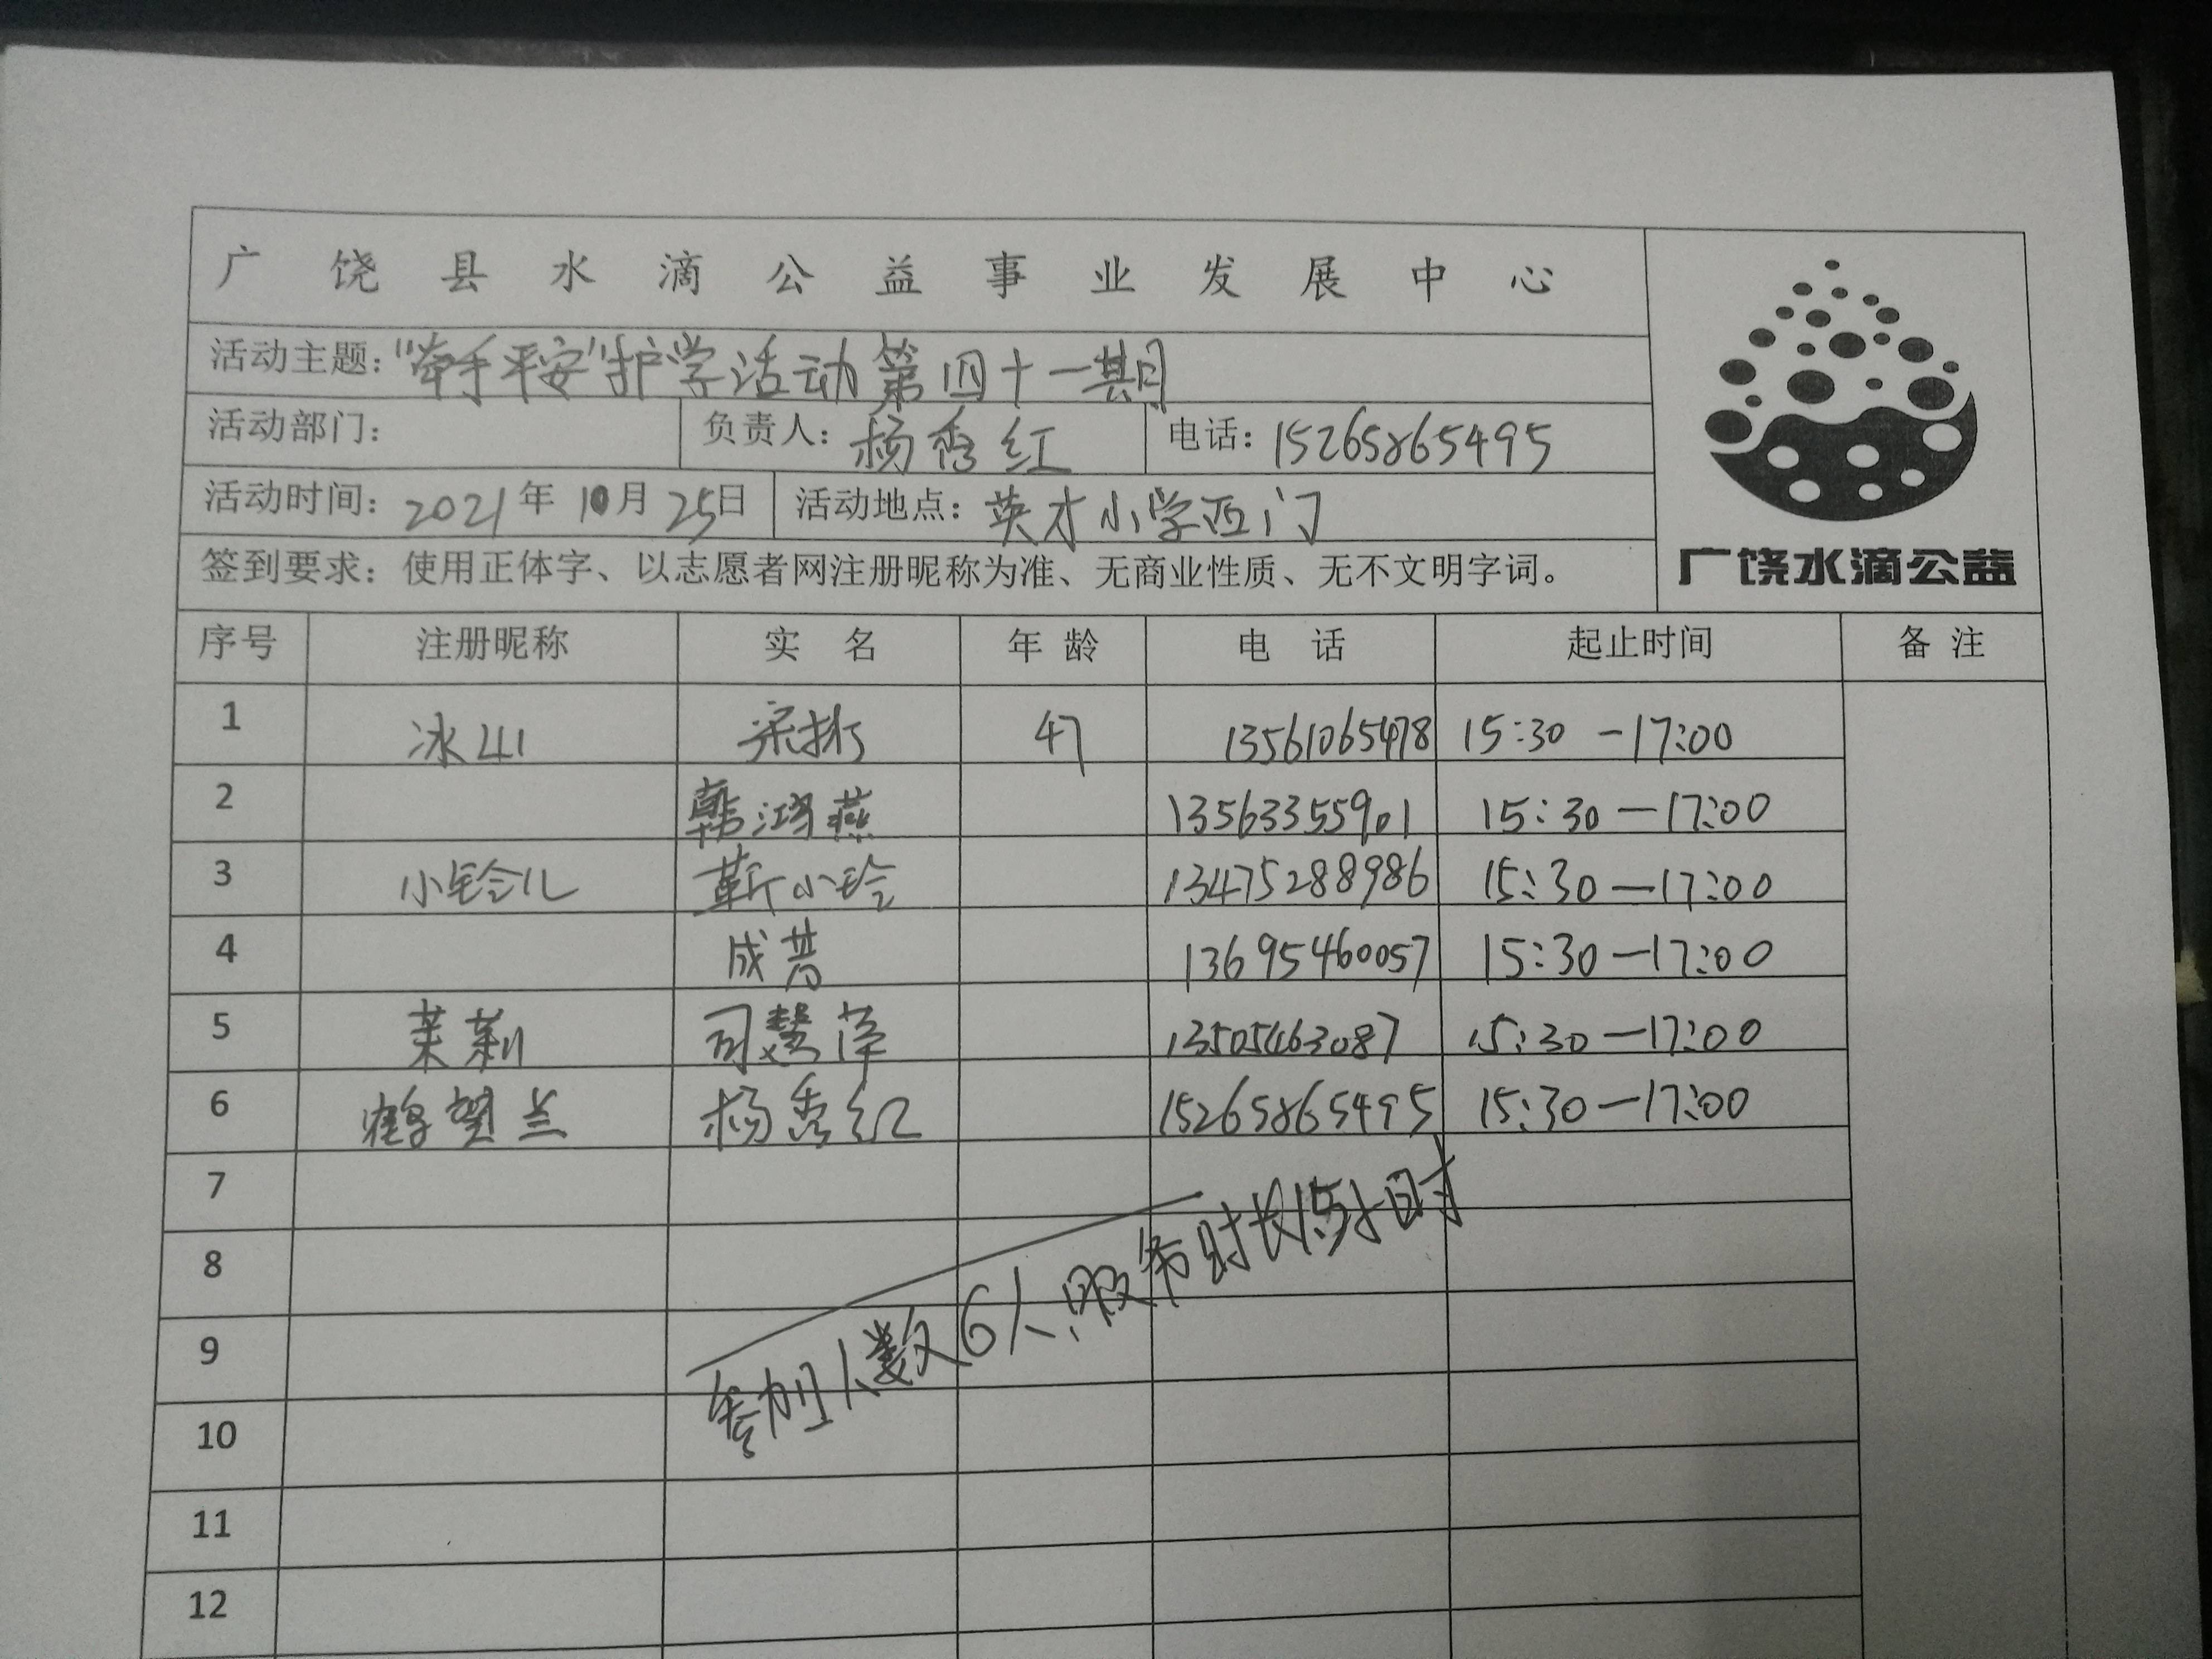 广饶县水滴公益事业发展中心
活动主题：“牵手平安”护学活动第四十一期
活动部门： 负责人：杨秀红 电话：15265865495
活动时间：2021年10月25日 活动地点：英才小学西门
签到要求：使用正体字、以志愿者网注册昵称为准、无商业性质、无不文明字词。
广饶水滴公益
序号 注册昵称 实名 年龄 电话 起止时间 备注
1 冰山 47 13561065478 15:30-17:00
2 韩鸿燕 13563355901 15:30-17:00
3 小铃儿 靳小玲 13475288986 15:30-17:00
4 成昔 13695460057 15:30-17:00
5 茉莉 司慧萍 13505463087 15:30-17:00
6 鹤望兰 杨秀红 15265865495 15:30-17:00
7
8
9
10
11
12
参加人数6人，服务时长1.5小时